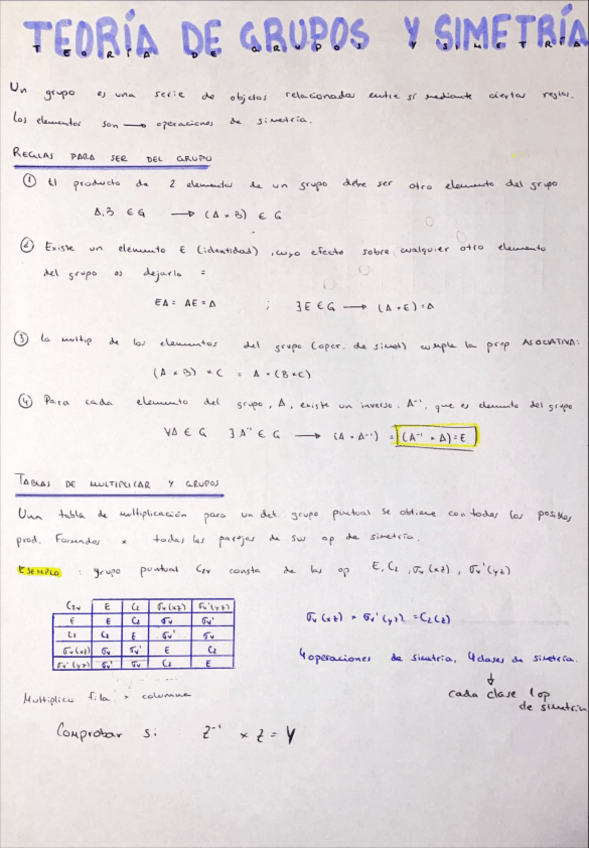 TEORÍA DE GRUPOS Y SIMETRÍA
TEORÍA DE GRUPOS Y SIMETRÍA
Un grupo es una serie de objetos relacionados entre sí mediante ciertas reglas.
Los elementos son → operaciones de simetría.
REGLAS PARA SER DEL GRUPO
① El producto de 2 elementos de un grupo debe ser otro elemento del grupo
A,B ∈ G → (A × B) ∈ G
② Existe un elemento E (identidad), cuyo efecto sobre cualquier otro elemento
del grupo es dejarlo =
EA = AE = A ; ∃ E ∈ G → (A × E) = A
③ La multip de los elementos del grupo (oper. de simet) cumple la prop ASOCIATIVA:
(A × B) × C = A × (B × C)
④ Para cada elemento del grupo, A, existe un inverso, A⁻¹, que es elemento del grupo
∀A ∈ G ∃ A⁻¹ ∈ G → (A × A⁻¹) = (A⁻¹ × A) = E
TABLAS DE MULTIPLICAR Y GRUPOS
Una tabla de multiplicación para un det. grupo puntual se obtiene con todos los posibles
prod. Formados x todas las parejas de sus op de simetría.
EJEMPLO : grupo puntual C2v consta de las op E, C2, σv(xz), σv'(yz)
C2v E C2 σv(xz) σv'(yz)
E E C2 σv σv'
C2 C2 E σv' σv
σv(xz) σv σv' E C2
σv'(yz) σv' σv C2 E
σv(xz) × σv'(yz) = C2(z)
4 operaciones de simetría, 4 clases de simetría.
↓
cada clase 1 op
de simetría
Multiplico fila × columna
Comprobar si Z⁻¹ × Z = Y